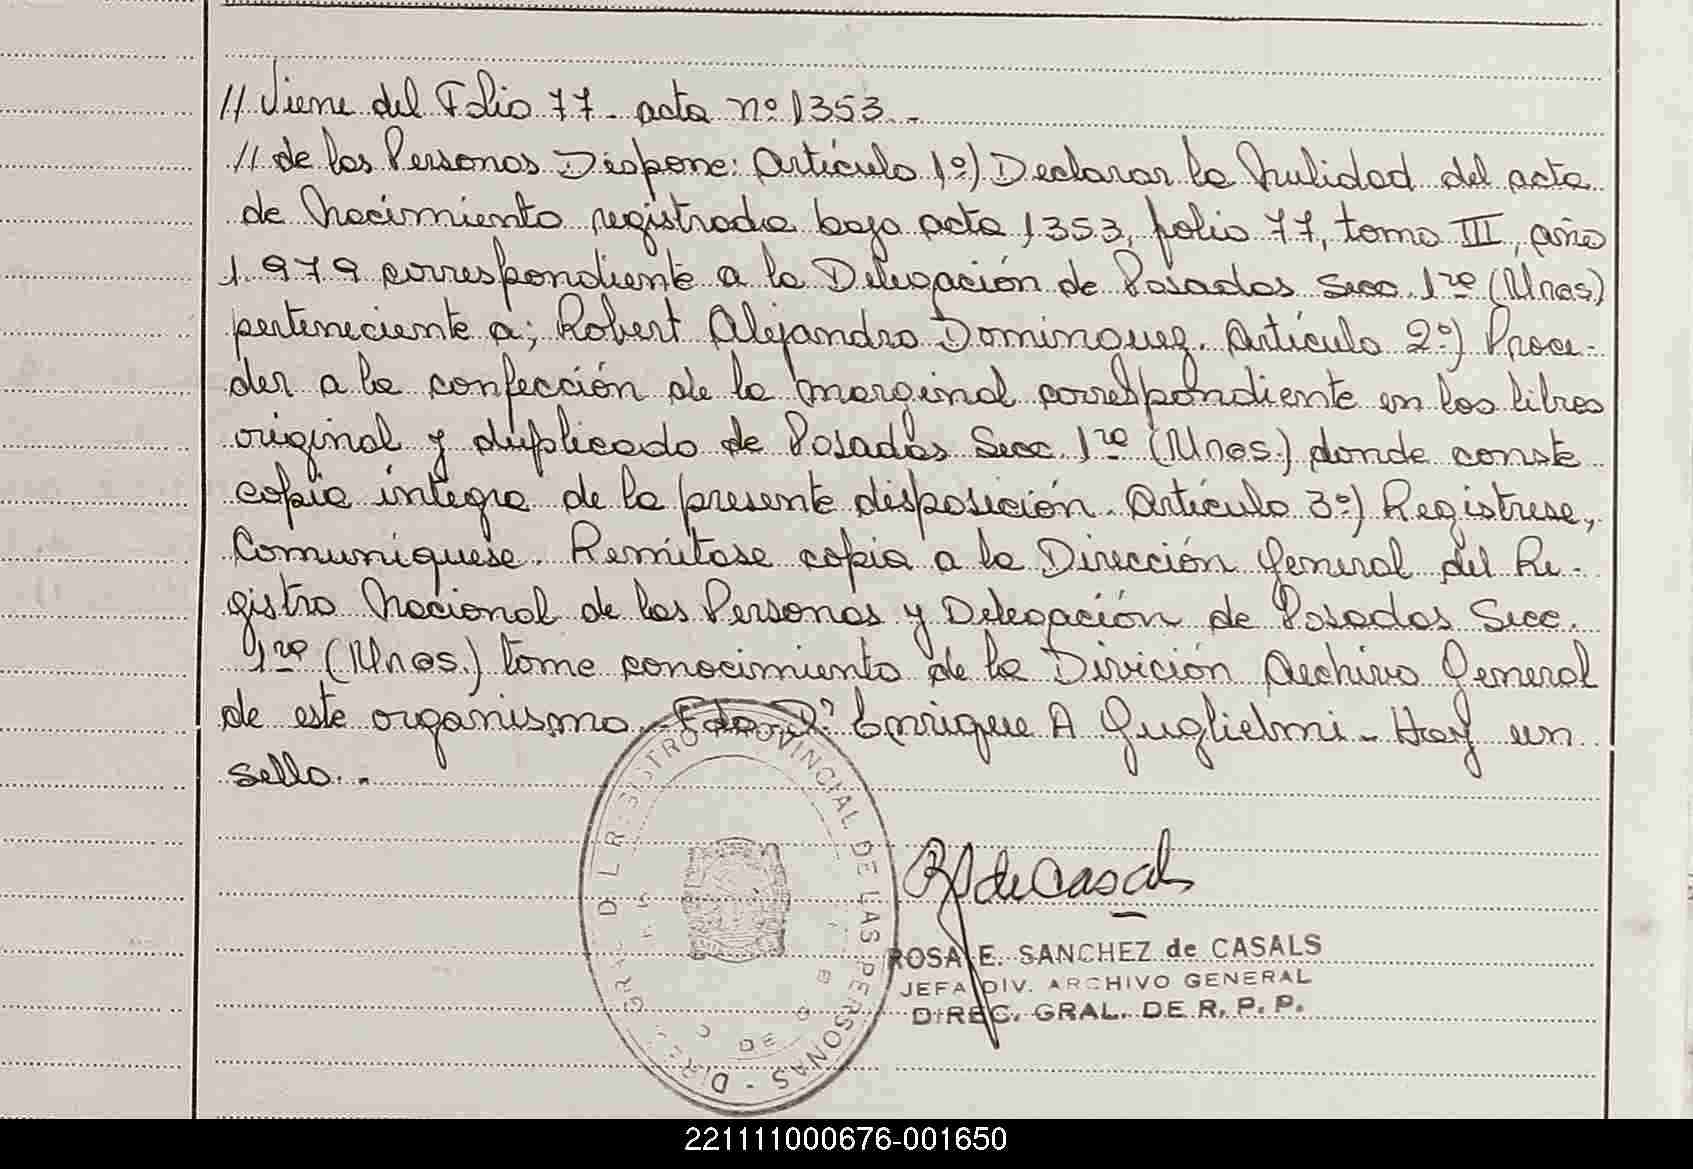 // Viene del Folio 77 - acta nº 1353.-
// de las Personas Dispone: Artículo 1º) Declarar la Nulidad del acta
de Nacimiento registrada bajo acta 1353, folio 77, tomo III, año
1.979 correspondiente a la Delegación de Posadas Secc. 1ra (Mnes)
perteneciente a; Robert Alejandro Dominguez. Artículo 2º) Proce-
der a la confección de la marginal correspondiente en los libros
original y duplicado de Posadas Secc. 1ra (Mnes.) donde conste
copia íntegra de la presente disposición. Artículo 3º) Regístrese,
Comuníquese. Remítase copia a la Dirección General del Re-
gistro Nacional de las Personas y Delegación de Posadas Secc.
1ra (Mnes.) tome conocimiento de la Divición Archivo General
de este organismo. Fdo. Dº Enrique A Guglielmi - Hay un
sello.-
DIREC. GRAL. DEL REGISTRO PROVINCIAL DE LAS PERSONAS
R S de Casals
ROSA E. SANCHEZ de CASALS
JEFA DIV. ARCHIVO GENERAL
DIREC. GRAL. DE R. P. P.
221111000676-001650